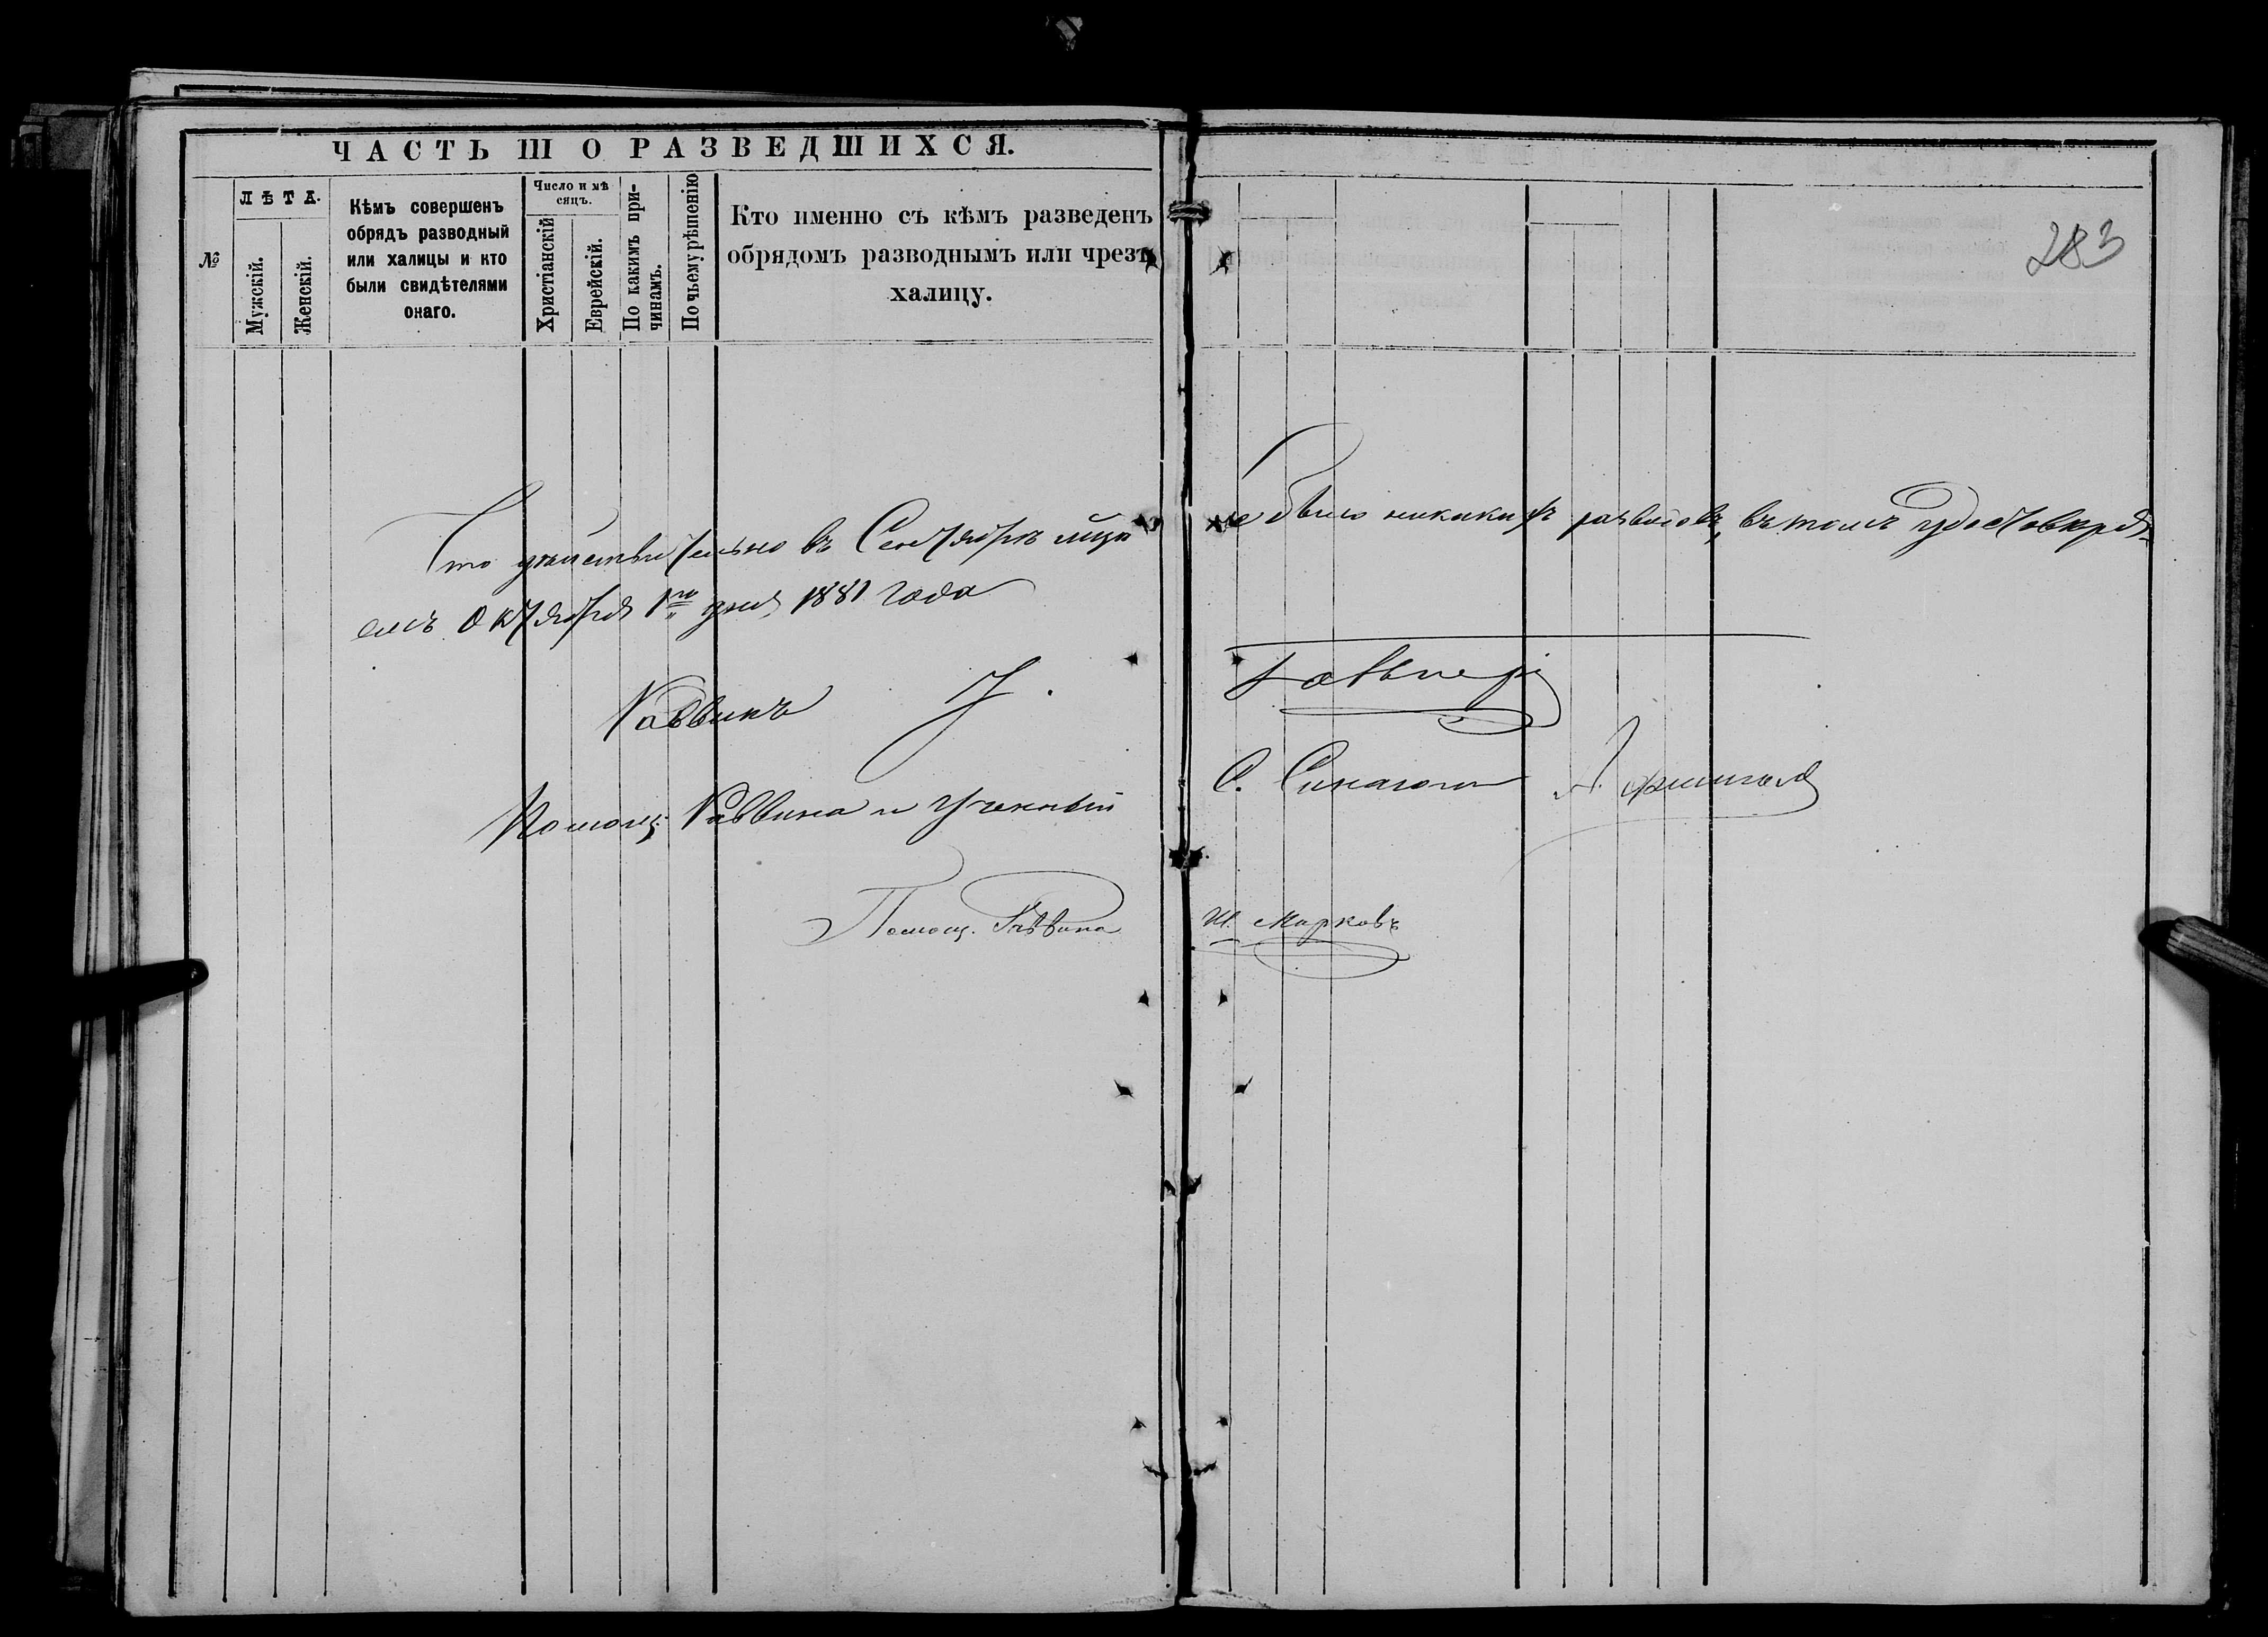 ЧАСТЬ III О РАЗВЕДШИХСЯ.
№
ЛѢТА.
Мужскій.
Женскій.
Кѣмъ совершенъ
обрядъ разводный
или халицы и кто
были свидѣтелями
онаго.
Число и мѣ
сяцъ.
Христіанскій
Еврейскій.
По какимъ при-
чинамъ.
По чьему рѣшенію
Кто именно съ кѣмъ разведенъ
обрядомъ разводнымъ или чрезъ
халицу.
283
Что дѣйствительно въ Сентябрѣ мцѣ не было никакихъ разводовъ, въ томъ удостовѣря-
емъ Октября 1го дня 1881 года
Раввинъ
Помощ. Раввина и Ученный С.
Помощ. Раввина Ш. Марковъ